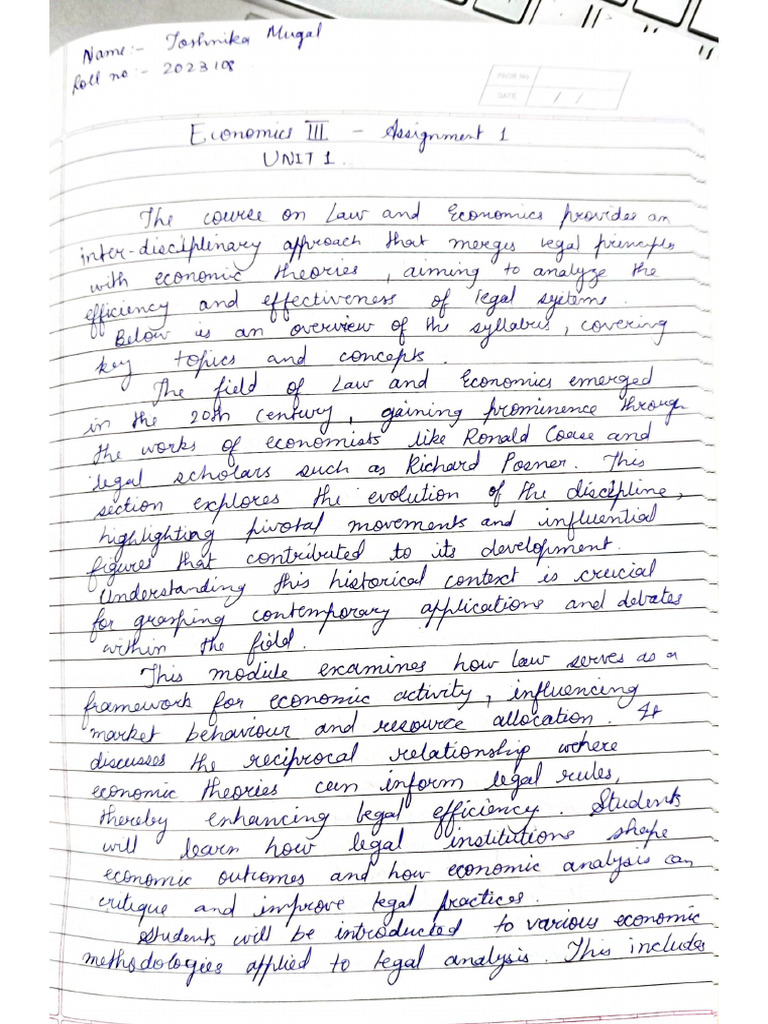 Name:- Toshnika Mugal
Roll no:- 2023108
PAGE NO
DATE / /
Economics III - Assignment 1
UNIT 1.
The course on Law and Economics provides an
inter-disciplinary approach that merges legal principles
with economic theories, aiming to analyze the
efficiency and effectiveness of legal systems.
Below is an overview of the syllabus, covering
key topics and concepts.
The field of Law and Economics emerged
in the 20th century, gaining prominence through
the works of economists like Ronald Coase and
legal scholars such as Richard Posner. This
section explores the evolution of the discipline,
highlighting pivotal movements and influential
figures that contributed to its development.
Understanding this historical context is crucial
for grasping contemporary applications and debates
within the field.
This module examines how law serves as a
framework for economic activity, influencing
market behaviour and resource allocation. It
discusses the reciprocal relationship where
economic theories can inform legal rules,
thereby enhancing legal efficiency. Students
will learn how legal institutions shape
economic outcomes and how economic analysis can
critique and improve legal practices.
Students will be introduced to various economic
methodologies applied to legal analysis. This includes